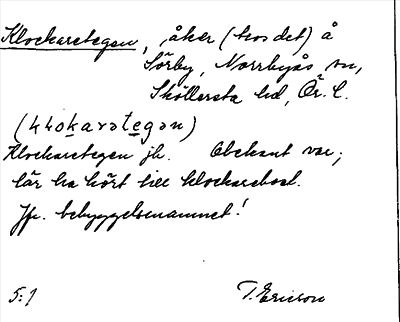 Klockaretegen, åker (hos det) å
Sörby, Norrbyås sn,
Sköllersta hd, Ör. l.
(klokarategən)
Klockaretegen jb. Obekant var;
lär ha hört till klockarebost.
Jfr. bebyggelsenamnet!
5:1 T. Ericson